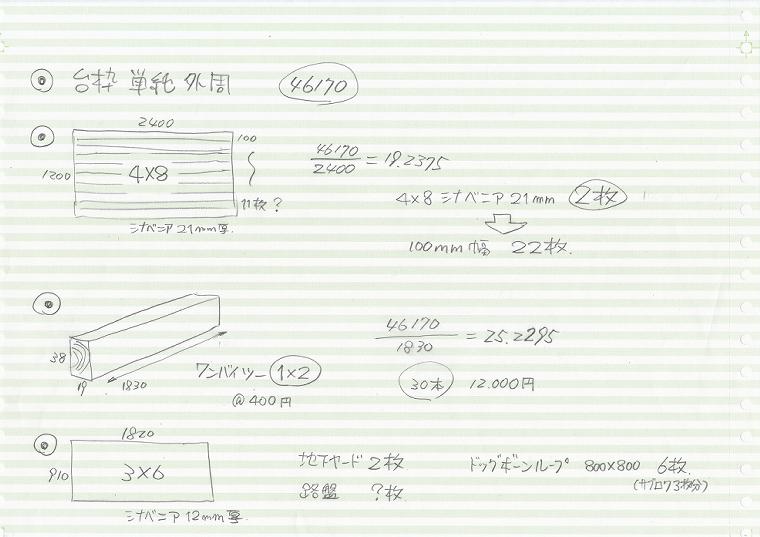 台枠 単純 外周 46170
2400
100
1200
4×8
11枚?
シナベニア 21mm厚.
46170
2400
= 19.2375
4×8 シナベニア 21mm 2枚
100mm幅 22枚.
38
19
1830
ワンバイツー 1×2
@400円
46170
1830
= 25.2295
30本 12.000円
1820
910
3×6
シナベニア 12mm厚
地下ヤード 2枚
路盤 ?枚
ドッグボーンループ 800×800 6枚.
(サブロク3枚分)